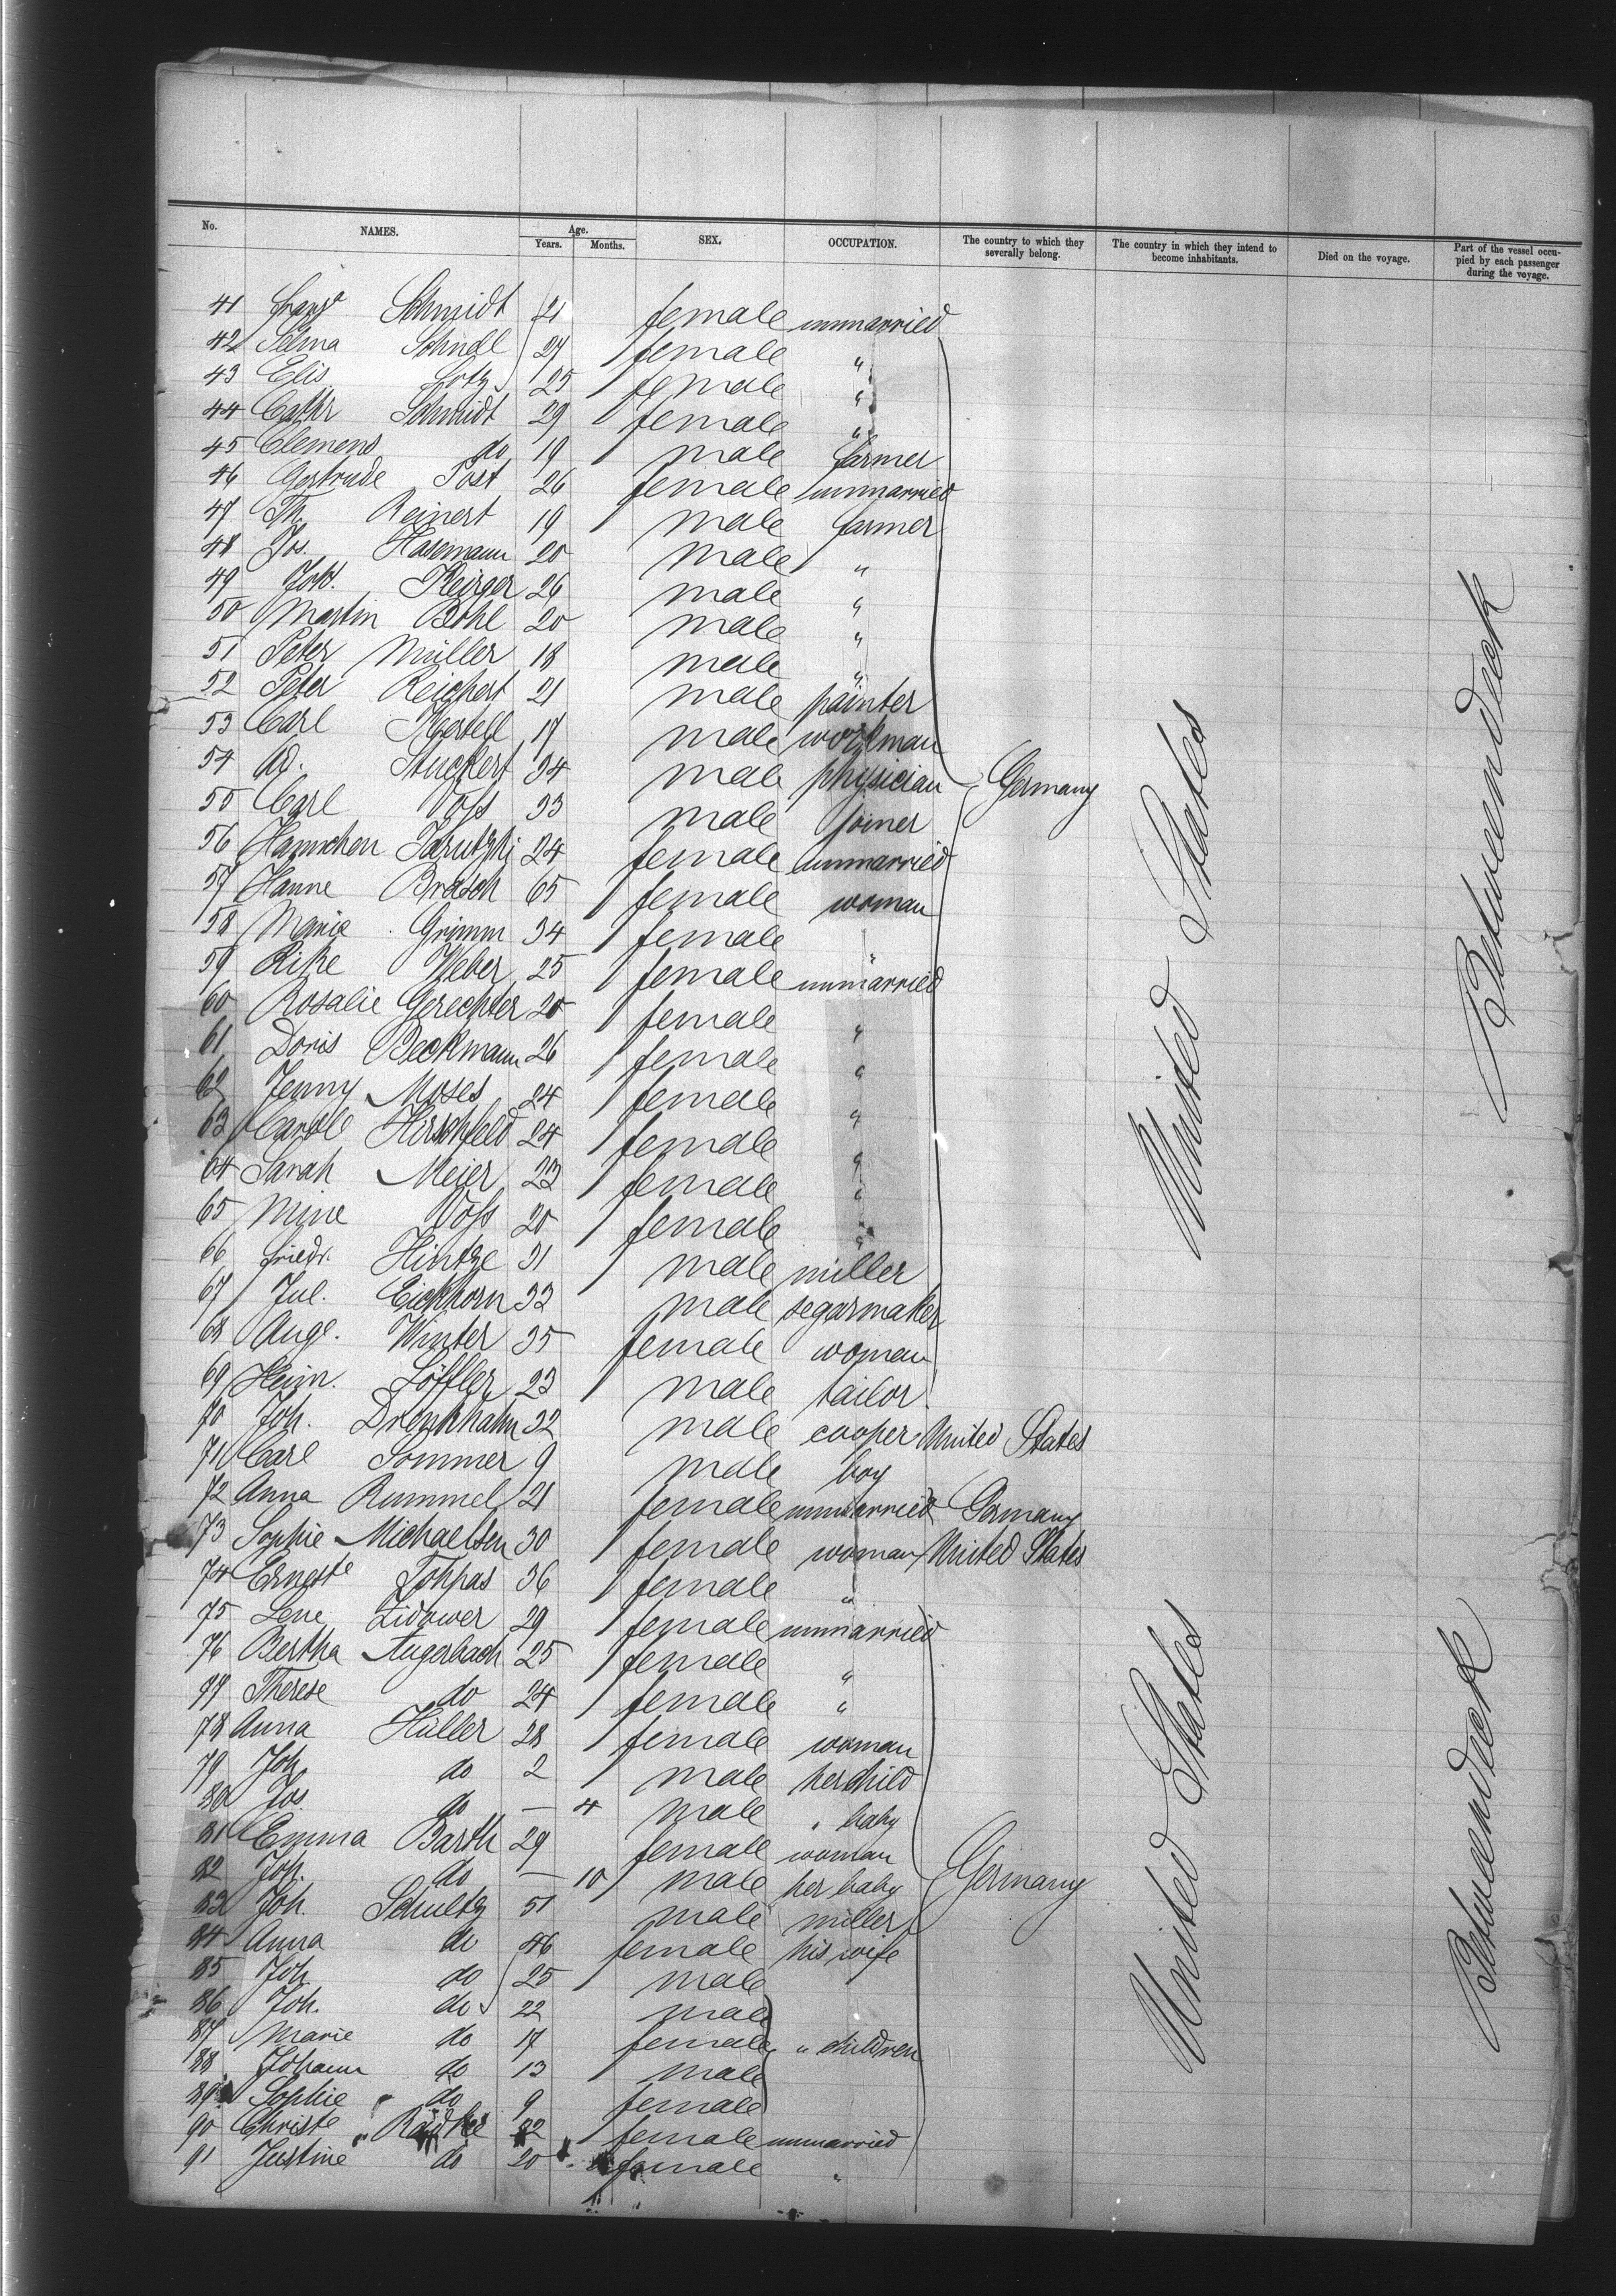 No. NAMES. Age. Years. Months. SEX. OCCUPATION. The country to which they severally belong. The country in which they intend to become inhabitants. Died on the voyage. Part of the vessel occupied by each passenger during the voyage.
41 Schmidt 21 female unmarried
42 Selma Schindl 27 female "
43 Elis Lotz 25 female "
44 Cathr Schmidt 29 female "
45 Clemens do 19 male farmer
46 Gertrude Post 26 female unmarried
47 Th. Reinert 19 male farmer
48 Jos. Hasemann 20 male "
49 Joh. 26 male "
50 Martin Bohl 20 male "
51 Peter Müller 18 male "
52 Peter Reichert 21 male painter
53 Carl 17 male workman
54 Ad. Stuckert 34 male physician Germany
55 Carl Voss 33 male joiner
56 Hannchen 24 female unmarried
57 Hanne Brasch 65 female woman
58 Marie Grimm 34 female "
59 Rike Weber 25 female unmarried
60 Rosalie Gerechter 20 female "
61 Doris Beckmann 26 female "
62 Jenny Moses 24 female "
63 Hirschfeld 24 female "
64 Sarah Meier 23 female "
65 Mine Voss 20 female "
66 Friedr. Hintze 31 male miller
67 Jul. Eickhorn 33 male segarmaker
68 Aug. Winter 35 female woman
69 Heinr. Löffler 23 male tailor
70 Joh. Drenkhahn 32 male cooper United States
71 Carl Sommer 9 male boy
72 Anna Rummel 21 female unmarried Germany
73 Sophie Michaelsen 30 female woman United States
74 Ernest 36 female "
75 Lene Zidower 29 female unmarried
76 Bertha Augerbach 25 female "
77 Therese do 24 female "
78 Anna Hüller 28 female woman
79 Joh. do 2 male her child
80 Jos. do — 4 male " baby
81 Emma Barth 29 female woman
82 Joh. do — 10 male her baby Germany
83 Joh. Schultz 51 male miller
84 Anna do 46 female his wife
85 Joh. do 25 male
86 Joh. do 22 male
87 Marie do 17 female " children
88 Johann do 13 male
89 Sophie do 9 female
90 Christe 22 female unmarried
91 Justine do 20 female "
United States
Betweendeck
United States
Betweendeck